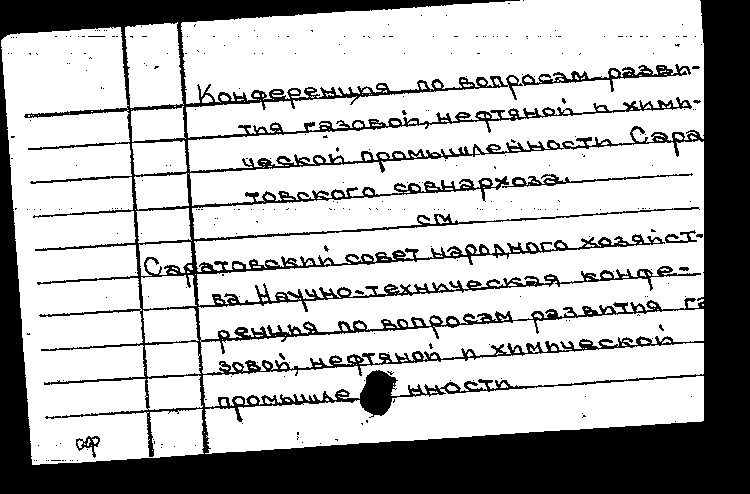 Конференция по вопросам разви-
тия газовой, нефтяной и хими-
ческой промышленности Сара
товского совнархоза.
см.
Саратовский совет народного хозяйст-
ва. Научно-техническая конфе-
ренция по вопросам развития га
зовой, нефтяной и химической
промышле нности